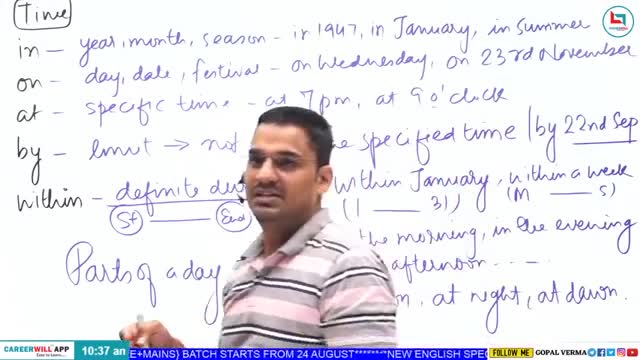 Time
in – year, month, season – in 1947, in January, in summer
on – day, date, festival – on Wednesday, on 23rd November
at – specific time – at 7 pm, at 9 o'clock
by – limit → not specified time / by 22nd Sep
within – definite within January, within a week
St End (1 31) (M S)
the morning, in the evening
Parts of a day afternoon
at night, at dawn.
CAREERWILL APP 10:37 an E+MAINS) BATCH STARTS FROM 24 AUGUST*******NEW ENGLISH SPEC FOLLOW ME GOPAL VERMA